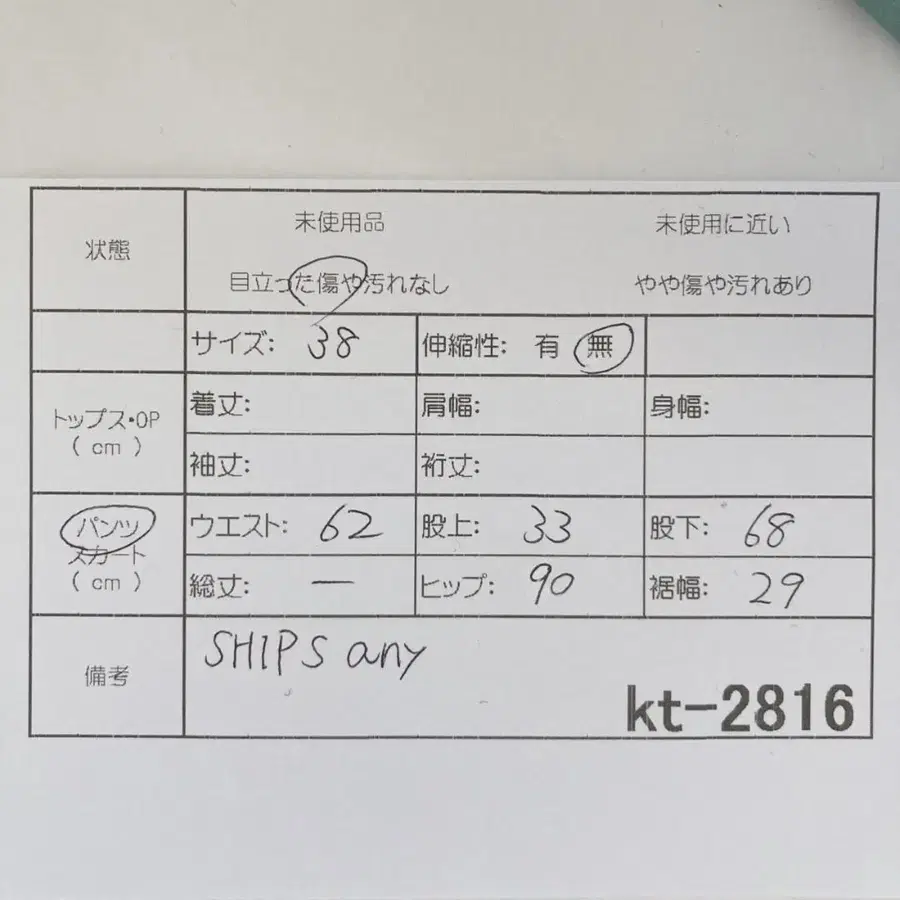 状態
未使用品 未使用に近い
目立った傷や汚れなし やや傷や汚れあり
サイズ: 38 伸縮性: 有 無
トップス・OP
( cm )
着丈: 肩幅: 身幅:
袖丈: 裄丈:
パンツ
スカート
( cm )
ウエスト: 62 股上: 33 股下: 68
総丈: — ヒップ: 90 裾幅: 29
備考
SHIPS any
kt-2816